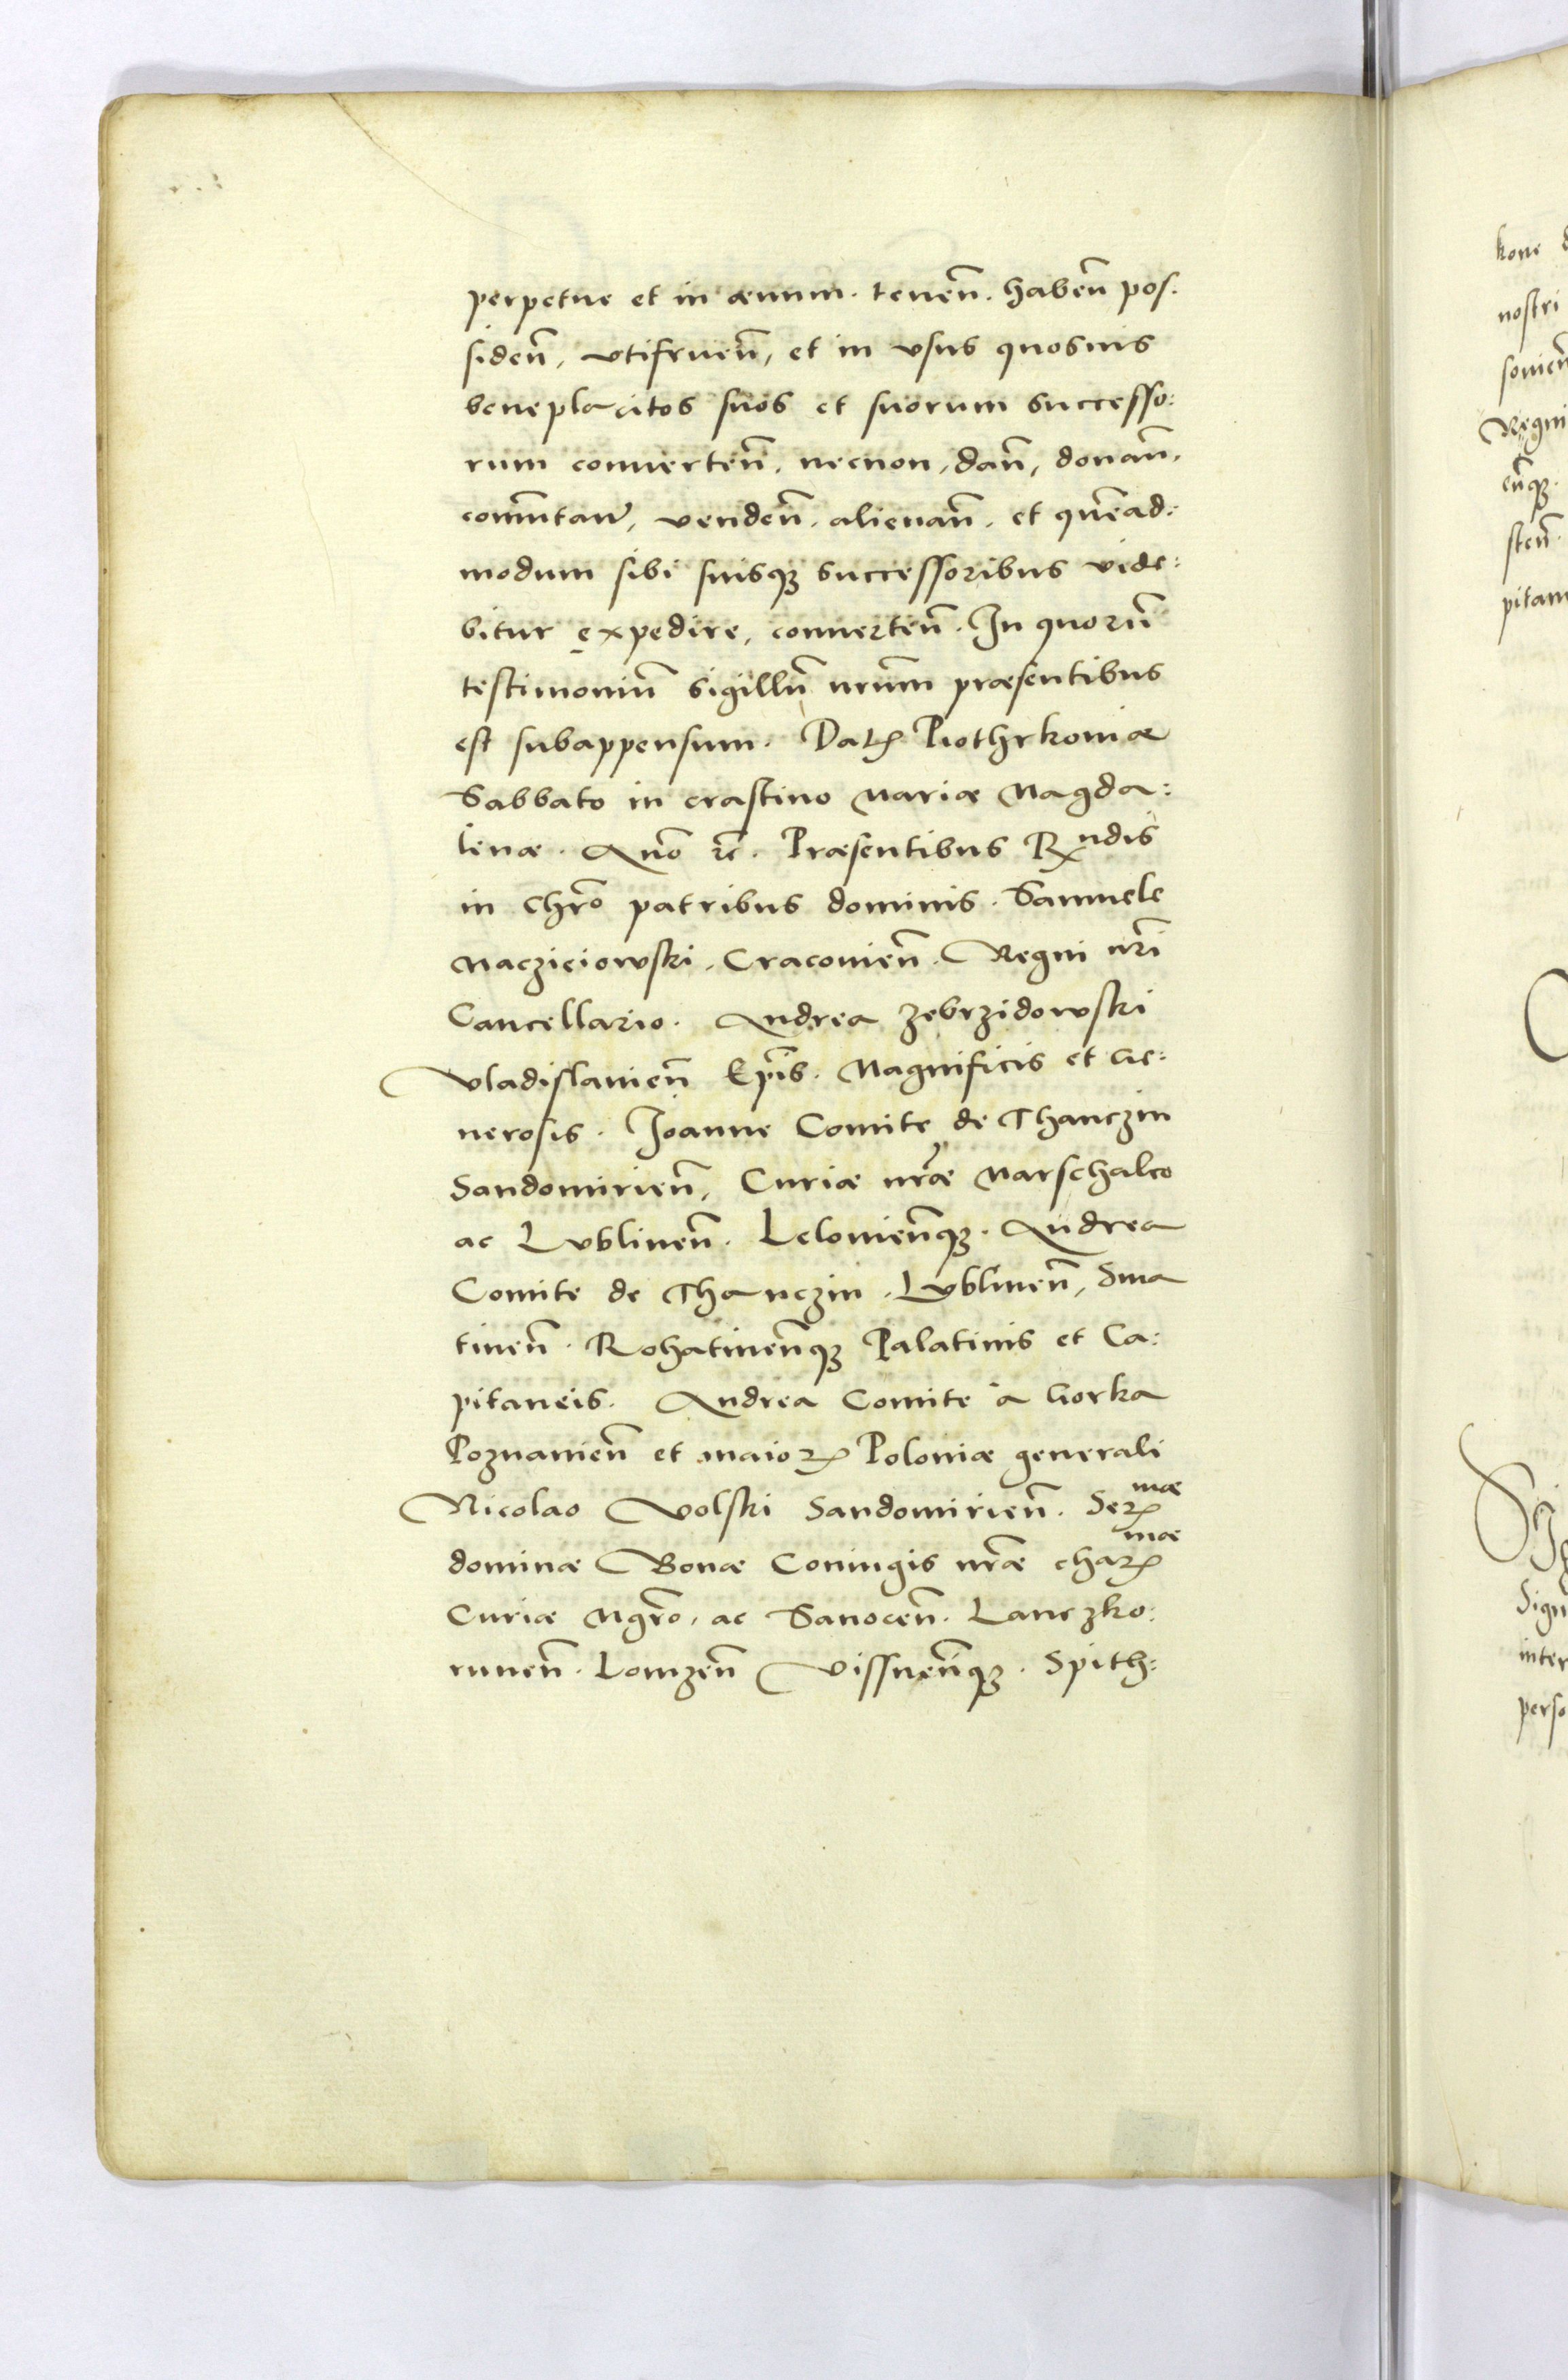 perpetue et in æuum. tenen̄. haben̄ pos:
siden̄, vtifruen̄, et in vsus quosuis
beneplacitos suos et suorum successo:
rum conuerten̄. necnon, dan̄, donan̄.
com̄utan̄, venden̄. alienan̄. et quēad:
modum sibi suisqꝫ successoribus vide:
bitur expedire, conuerten̄. In quorū
testimoniū sigillū nrūm præsentibus
est subappensum. Datꝝ Piothrkouiæ
Sabbato in crastino Mariæ Magda:
lenæ. Anō ꝛc̄. Præsentibus Rndis
in chrō patribus dominis. Samuele
Macziciowski. Cracouien̄. Regni nrī
Cancellario. Andrea Zebrzidowski
Vladislauien̄ Ep̄is. Magnificis et Ge:
nerosis. Joanne Comite de Thanczin
Sandomirien̄, Curiæ nrǣ Marschalco
ac Lvblinen̄. Lelouien̄qꝫ. Andrea
Comite de Thanczin. Lvblinen̄, Snia
tinen̄. Rohatinen̄qꝫ Palatinis et Ca:
pitaneis. Andrea Comite à Gorka
Poznanien̄ et maioꝝ Poloniæ generali
Nicolao Volski Sandomirien̄. Serꝫmæ
dominæ Bonæ Coniugis nrǣ charꝫmæ
Curiæ Mgrō, ac Sanocen̄. Lanczko:
runen̄. Lomzen̄ Vissnen̄qꝫ. Spith:
kone
nostri
Regni
en̄qꝫ.
sten̄.
pitan
Sign
inter
perso